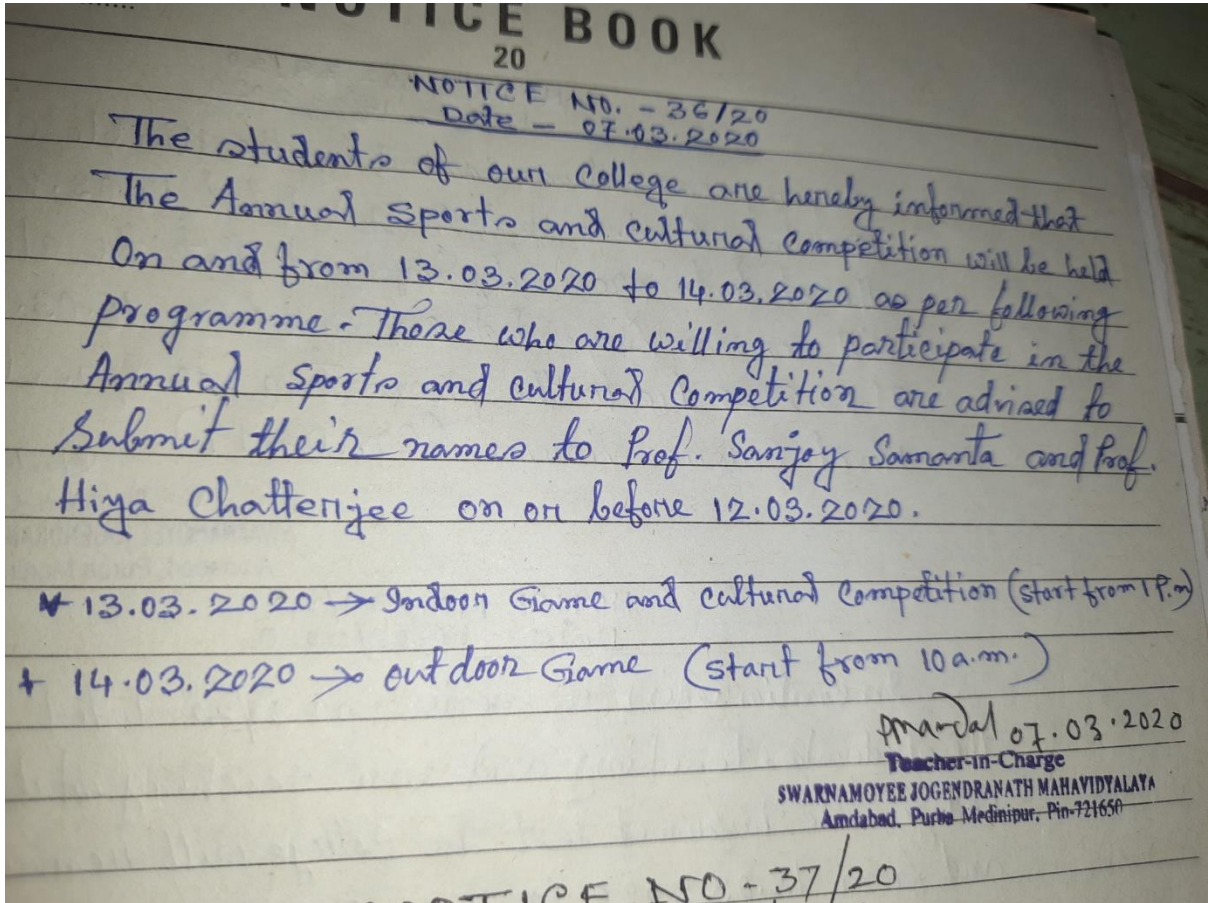 NOTICE BOOK
20
NOTICE NO. - 36/20
Date - 07.03.2020
The students of our College are hereby informed that
The Annual Sports and cultural Competition will be held
On and from 13.03.2020 to 14.03.2020 as per following
programme. Those who are willing to participate in the
Annual Sports and cultural Competition are advised to
Submit their names to Prof. Sanjoy Samanta and Prof.
Hiya Chatterjee on or before 12.03.2020.
13.03.2020 → Indoor Game and cultural Competition (start from 1 P.m)
+ 14.03.2020 → out door Game (start from 10 a.m.)
07.03.2020
Teacher-in-Charge
SWARNAMOYEE JOGENDRANATH MAHAVIDYALAYA
Amdabad, Purba Medinipur, Pin-721650
NOTICE NO - 37/20